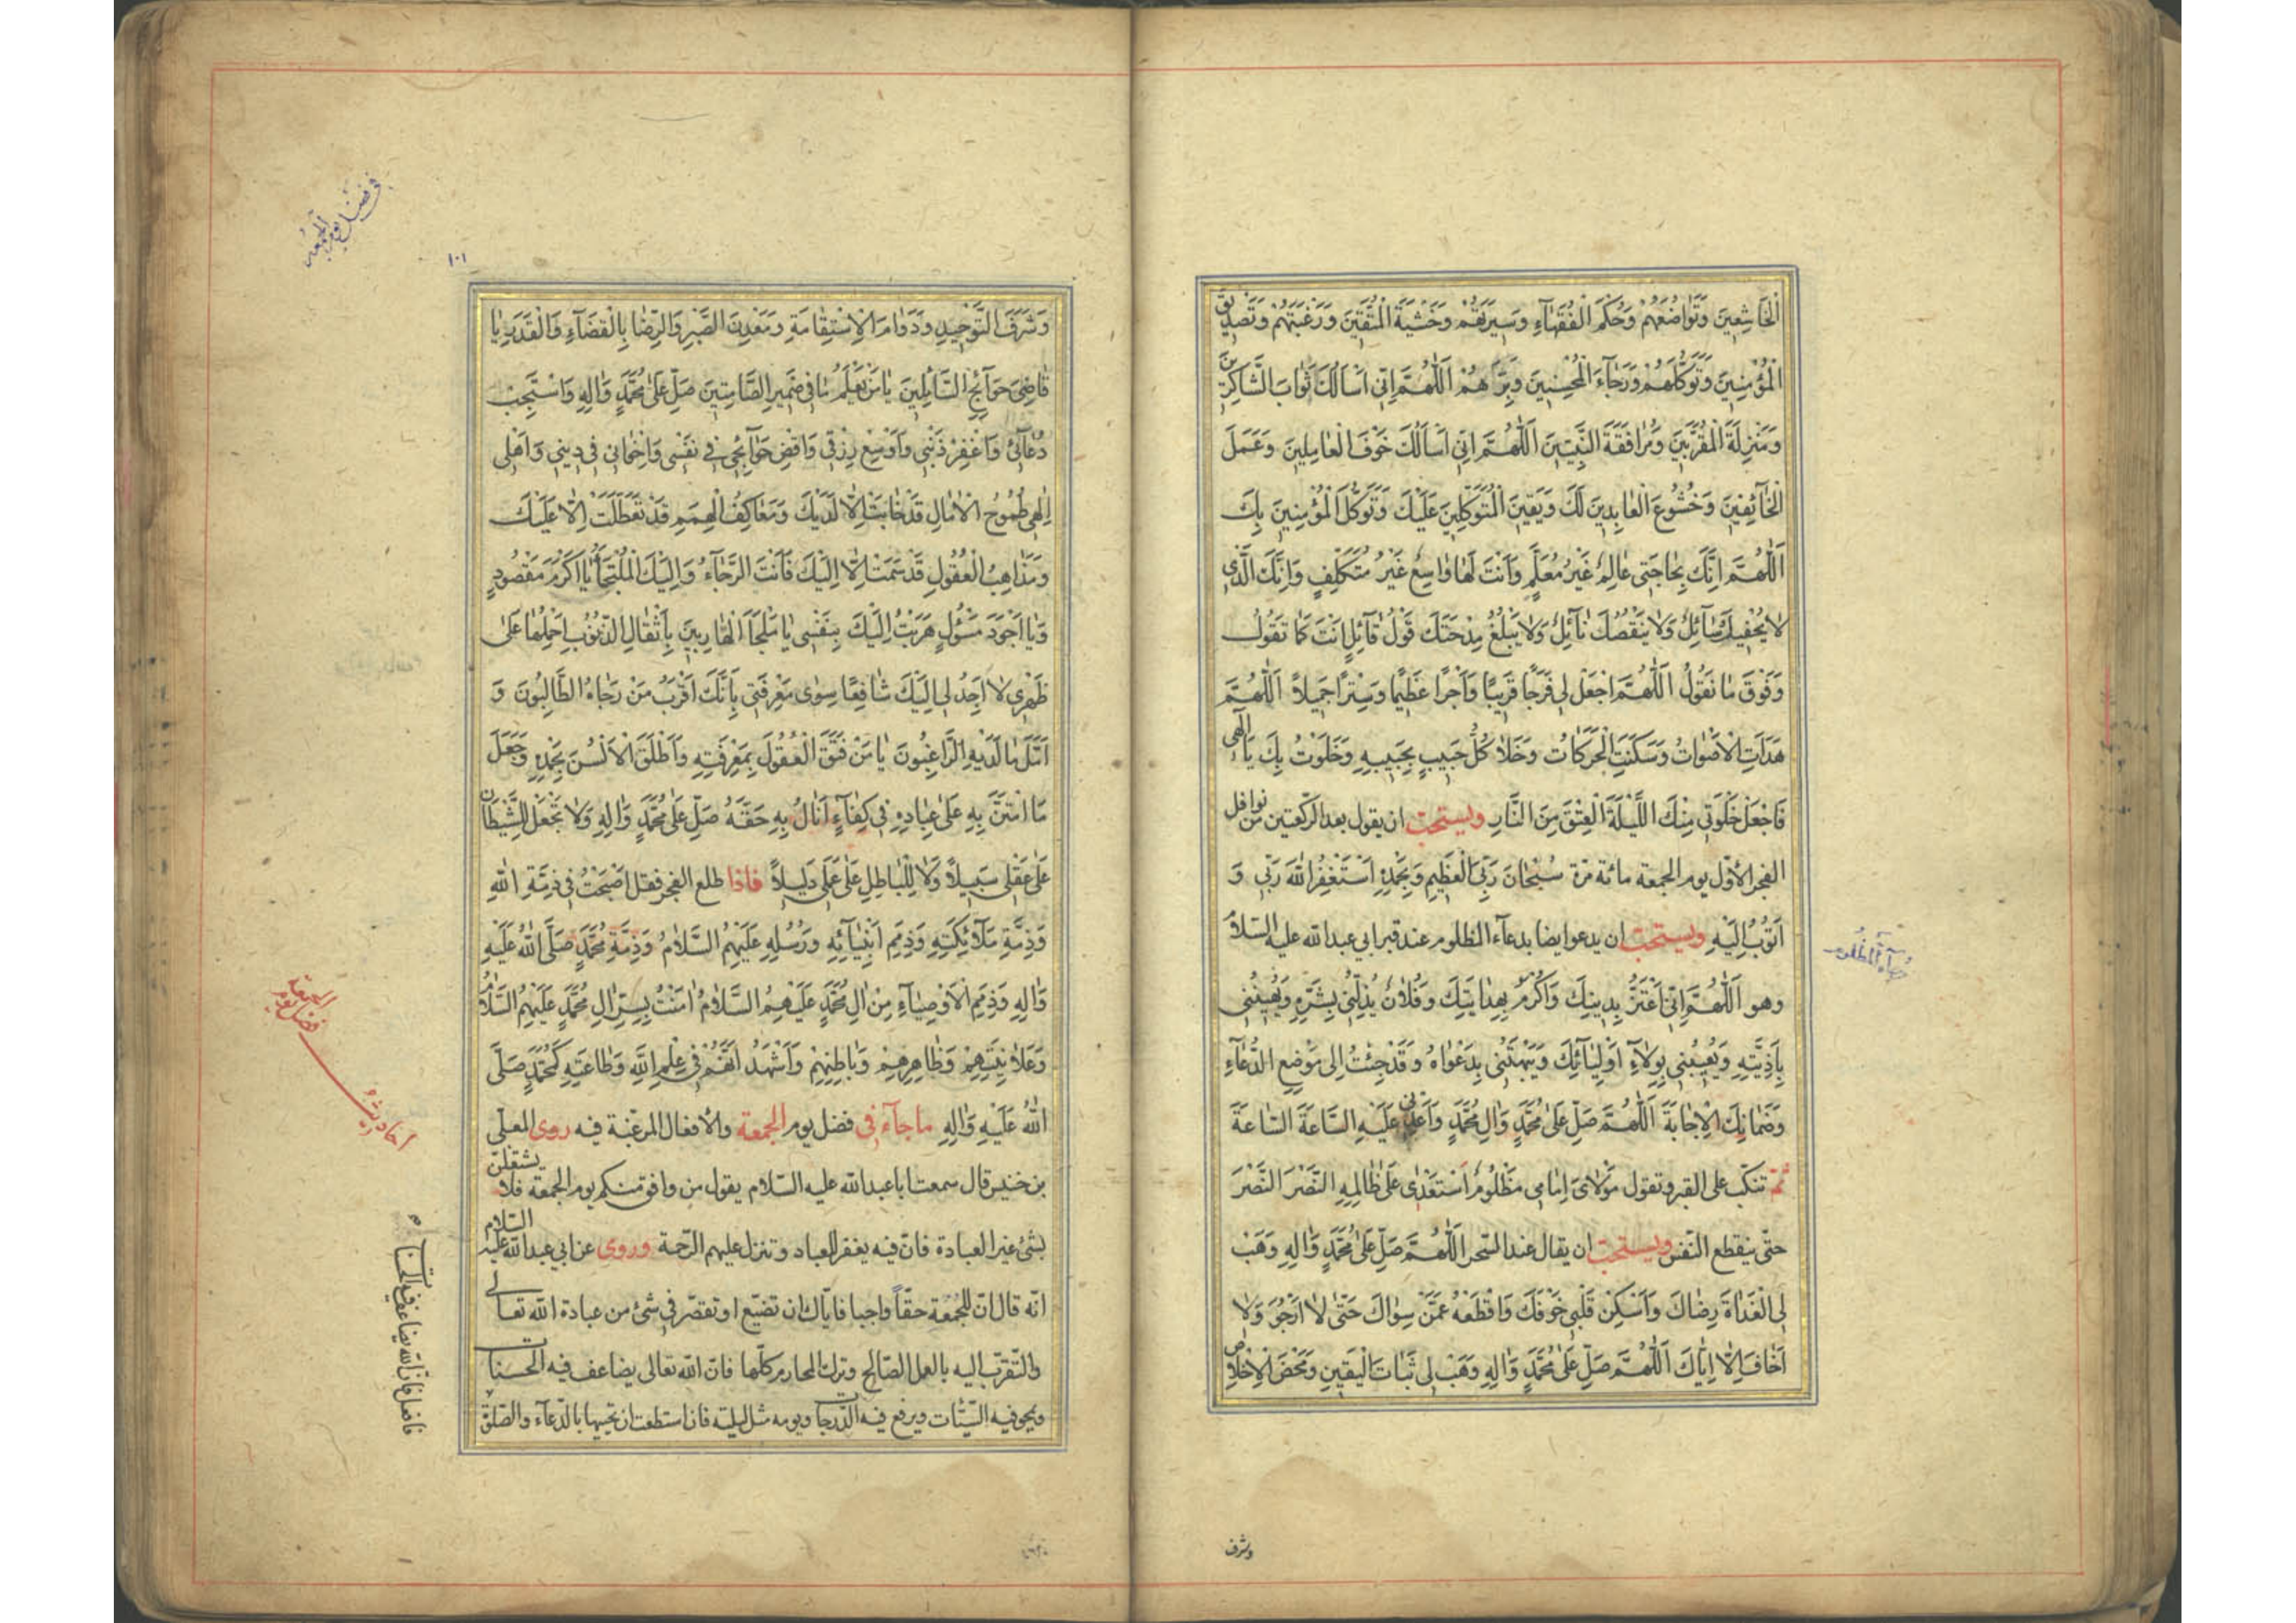 اَلْخَاشِعِينَ وَتَوَاضُعَهُمْ وَحُكْمَ الْفُقَهَآءِ وَسِيرَتَهُمْ وَخَشْيَةَ الْمُتَّقِينَ وَرَغْبَتَهُمْ وَتَصْدِيقَ
الْمُؤْمِنِينَ وَتَوَكُّلَهُمْ وَرَجَآءَ الْمُحْسِنِينَ وَبِرَّهُمْ اَللّٰهُمَّ اِنِّي اَسْاَلُكَ ثَوَابَ الشَّاكِرِينَ
وَمَنْزِلَةَ الْمُقَرَّبِينَ وَمُرَافَقَةَ النَّبِيِّينَ اَللّٰهُمَّ اِنِّي اَسْاَلُكَ خَوْفَ الْعَامِلِينَ وَعَمَلَ
الْخَآئِفِينَ وَخُشُوعَ الْعَابِدِينَ لَكَ وَيَقِينَ الْمُتَوَكِّلِينَ عَلَيْكَ وَتَوَكُّلَ الْمُؤْمِنِينَ بِكَ
اَللّٰهُمَّ اِنَّكَ بِحَاجَتِي عَالِمٌ غَيْرُ مُعَلَّمٍ وَاَنْتَ لَهَا وَاسِعٌ غَيْرُ مُتَكَلِّفٍ وَاِنَّكَ الَّذِي
لَا يُحْفِيكَ سَآئِلٌ وَلَا يَنْقُصُكَ نَآئِلٌ وَلَا يَبْلُغُ مِدْحَتَكَ قَوْلُ قَآئِلٍ اَنْتَ كَمَا تَقُولُ
وَفَوْقَ مَا نَقُولُ اَللّٰهُمَّ اجْعَلْ لِي فَرَجًا قَرِيبًا وَاَجْرًا عَظِيمًا وَسِتْرًا جَمِيلًا اَللّٰهُمَّ
هَدَاَتِ الْاَصْوَاتُ وَسَكَنَتِ الْحَرَكَاتُ وَخَلَا كُلُّ حَبِيبٍ بِحَبِيبِهِ وَخَلَوْتُ بِكَ يَا اِلٰهِي
فَاجْعَلْ خَلْوَتِي مِنْكَ اللَّيْلَةَ الْعِتْقَ مِنَ النَّارِ ويستحبّ ان يقول بعد الركعتين من نوافل
الفجر الأوّل يوم الجمعة مائة مرّة سُبْحَانَ رَبِّيَ الْعَظِيمِ وَبِحَمْدِهِ اَسْتَغْفِرُ اللهَ رَبِّي وَ
اَتُوبُ اِلَيْهِ ويستحبّ ان يدعو ايضا بدعآء المظلوم عند قبر ابي عبد الله عليه السلام
وهو اَللّٰهُمَّ اِنِّي اَعْتَزُّ بِدِينِكَ وَاَكْرُمُ بِهِدَايَتِكَ وَفُلَانٌ يُذِلُّنِي بِشَرِّهِ وَيُهِينُنِي
بِاَذِيَّتِهِ وَيُعِيبُنِي بِوِلَآءِ اَوْلِيَآئِكَ وَيَبْهَتُنِي بِدَعْوَاهُ وَقَدْ جِئْتُ اِلٰى مَوْضِعِ الدُّعَآءِ
وَضَمَانِكَ الْاِجَابَةَ اَللّٰهُمَّ صَلِّ عَلٰى مُحَمَّدٍ وَاٰلِ مُحَمَّدٍ وَاَعْدِنِي عَلَيْهِ السَّاعَةَ السَّاعَةَ
ثمّ تنكبّ على القبر وتقول مَوْلَايَ اِمَامِي مَظْلُومٌ اَسْتَعْدٰى عَلٰى ظَالِمِهِ النَّصْرَ النَّصْرَ
حتّى ينقطع النّفس ويستحبّ ان يقال عند السّحر اَللّٰهُمَّ صَلِّ عَلٰى مُحَمَّدٍ وَاٰلِهِ وَهَبْ
لِيَ الْغَدَاةَ رِضَاكَ وَاَسْكِنْ قَلْبِي خَوْفَكَ وَاقْطَعْهُ عَمَّنْ سِوَاكَ حَتّٰى لَا اَرْجُوَ وَلَا
اَخَافَ اِلَّا اِيَّاكَ اَللّٰهُمَّ صَلِّ عَلٰى مُحَمَّدٍ وَاٰلِهِ وَهَبْ لِي ثَبَاتَ الْيَقِينِ وَمَحْضَ الْاِخْلَاصِ
دعاء المظلوم
وشرف
في فضل يوم الجمعه
١٠١
وَشَرَفَ التَّوْحِيدِ وَدَوَامَ الْاِسْتِقَامَةِ وَمَعْدِنَ الصَّبْرِ وَالرِّضَا بِالْقَضَآءِ وَالْقَدَرِ يَا
قَاضِيَ حَوَآئِجِ السَّآئِلِينَ يَا مَنْ يَعْلَمُ مَا فِي ضَمِيرِ الصَّامِتِينَ صَلِّ عَلٰى مُحَمَّدٍ وَاٰلِهِ وَاسْتَجِبْ
دُعَآئِي وَاغْفِرْ ذَنْبِي وَاَوْسِعْ رِزْقِي وَاقْضِ حَوَآئِجِي فِي نَفْسِي وَاِخْوَانِي فِي دِينِي وَاَهْلِي
اِلٰهِي طُمُوحُ الْاٰمَالِ قَدْ خَابَتْ اِلَّا لَدَيْكَ وَمَعَاكِفُ الْهِمَمِ قَدْ تَعَطَّلَتْ اِلَّا عَلَيْكَ
وَمَذَاهِبُ الْعُقُولِ قَدْ سَمَتْ اِلَّا اِلَيْكَ فَاَنْتَ الرَّجَآءُ وَاِلَيْكَ الْمُلْتَجَأُ يَا اَكْرَمَ مَقْصُودٍ
وَيَا اَجْوَدَ مَسْؤُلٍ هَرَبْتُ اِلَيْكَ بِنَفْسِي يَا مَلْجَاَ الْهَارِبِينَ بِاَثْقَالِ الذُّنُوبِ اَحْمِلُهَا عَلٰى
ظَهْرِي لَا اَجِدُ لِي اِلَيْكَ شَافِعًا سِوٰى مَعْرِفَتِي بِاَنَّكَ اَقْرَبُ مَنْ رَجَاهُ الطَّالِبُونَ وَ
اَمَّلَ مَا لَدَيْهِ الرَّاغِبُونَ يَا مَنْ فَتَقَ الْعُقُولَ بِمَعْرِفَتِهِ وَاَطْلَقَ الْاَلْسُنَ بِحَمْدِهِ وَجَعَلَ
مَا امْتَنَّ بِهِ عَلٰى عِبَادِهِ فِي كِفَآءٍ اَنَالُ بِهِ حَقَّهُ صَلِّ عَلٰى مُحَمَّدٍ وَاٰلِهِ وَلَا تَجْعَلْ لِلشَّيْطَانِ
عَلٰى عَقْلِي سَبِيلًا وَلَا لِلْبَاطِلِ عَلٰى عَمَلِي دَلِيلًا فاذا طلع الفجر فقل اَصْبَحْتُ فِي ذِمَّةِ اللهِ
وَذِمَّةِ مَلَآئِكَتِهِ وَذِمَمِ اَنْبِيَآئِهِ وَرُسُلِهِ عَلَيْهِمُ السَّلَامُ وَذِمَّةِ مُحَمَّدٍ صَلَّى اللهُ عَلَيْهِ
وَاٰلِهِ وَذِمَمِ الْاَوْصِيَآءِ مِنْ اٰلِ مُحَمَّدٍ عَلَيْهِمُ السَّلَامُ اٰمَنْتُ بِسِرِّ اٰلِ مُحَمَّدٍ عَلَيْهِمُ السَّلَامُ
وَعَلَانِيَتِهِمْ وَظَاهِرِهِمْ وَبَاطِنِهِمْ وَاَشْهَدُ اَنَّهُمْ فِي عِلْمِ اللهِ وَطَاعَتِهِ كَمُحَمَّدٍ صَلَّى
اللهُ عَلَيْهِ وَاٰلِهِ ما جآء في فضل يوم الجمعة والأفعال المرغّبة فيه روى المعلّى
بن خنيس قال سمعت ابا عبد الله عليه السّلام يقول من وافق منكم يوم الجمعة فلا يشتغلنّ
بشئ غير العبادة فانّ فيه يغفر للعباد وتنزل عليهم الرّحمة وروى عن ابي عبد الله عليه السّلام
انّه قال انّ للجُمُعة حقّاً واجبا فايّاك ان تضيّع او تقصّر في شئ من عبادة الله تعالى
والتّقرّب اليه بالعمل الصّالح وترك المحارم كلّها فانّ الله تعالى يضاعف فيه الحسنات
ويمحو فيه السّيّئات ويرفع فيه الدّرجات ويومه مثل ليلته فان استطعت ان تحييها بالدّعآء والصّلوة
احاديث فضل يوم الجمعة
فافعل فانّ الله يضاعف فيها الحسنات